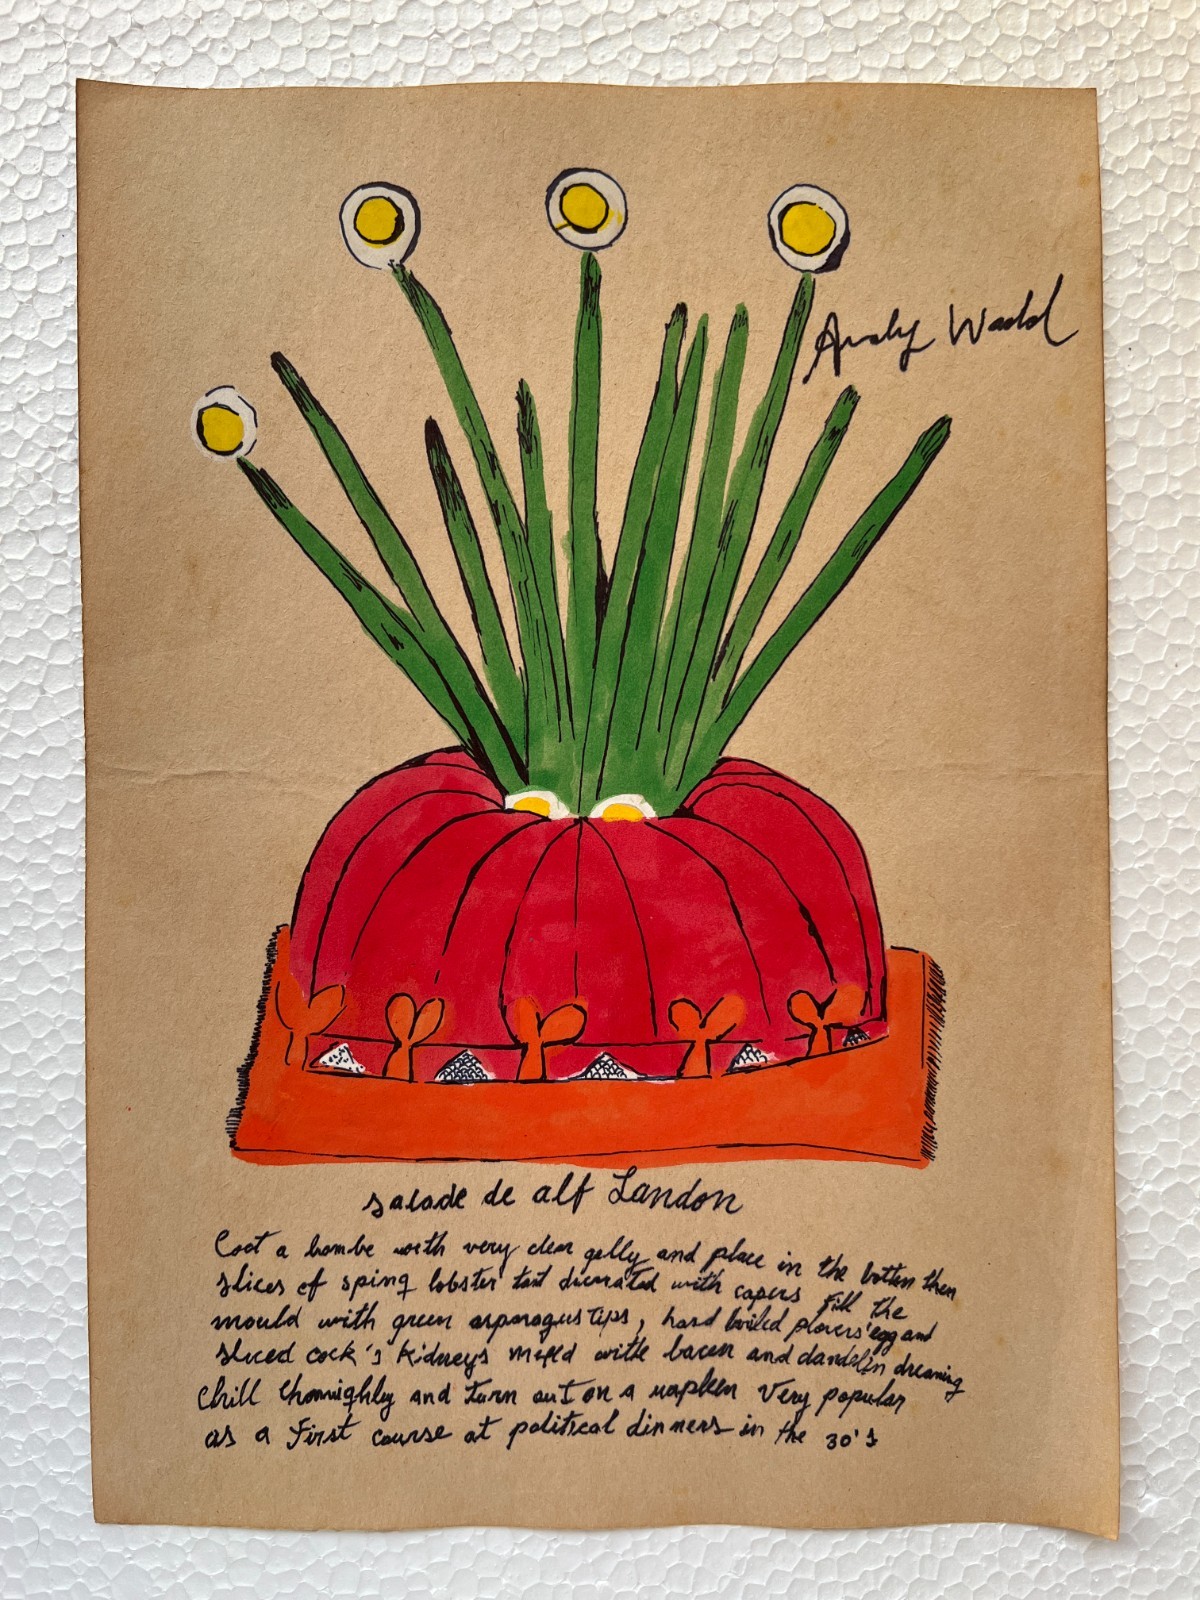 Andy Wadd
salade de alf Landon
Coat a bombe with very clear gelly and place in the bottin then
slices of sping lobster tast decorated with capers Fill the
mould with green asparagus tips, hard boiled plovers' egg and
sliced cock's kidneys with bacon and dandelin dreaming
Chill and turn out on a napken Very popular
as a First course at political dinners in the 30's